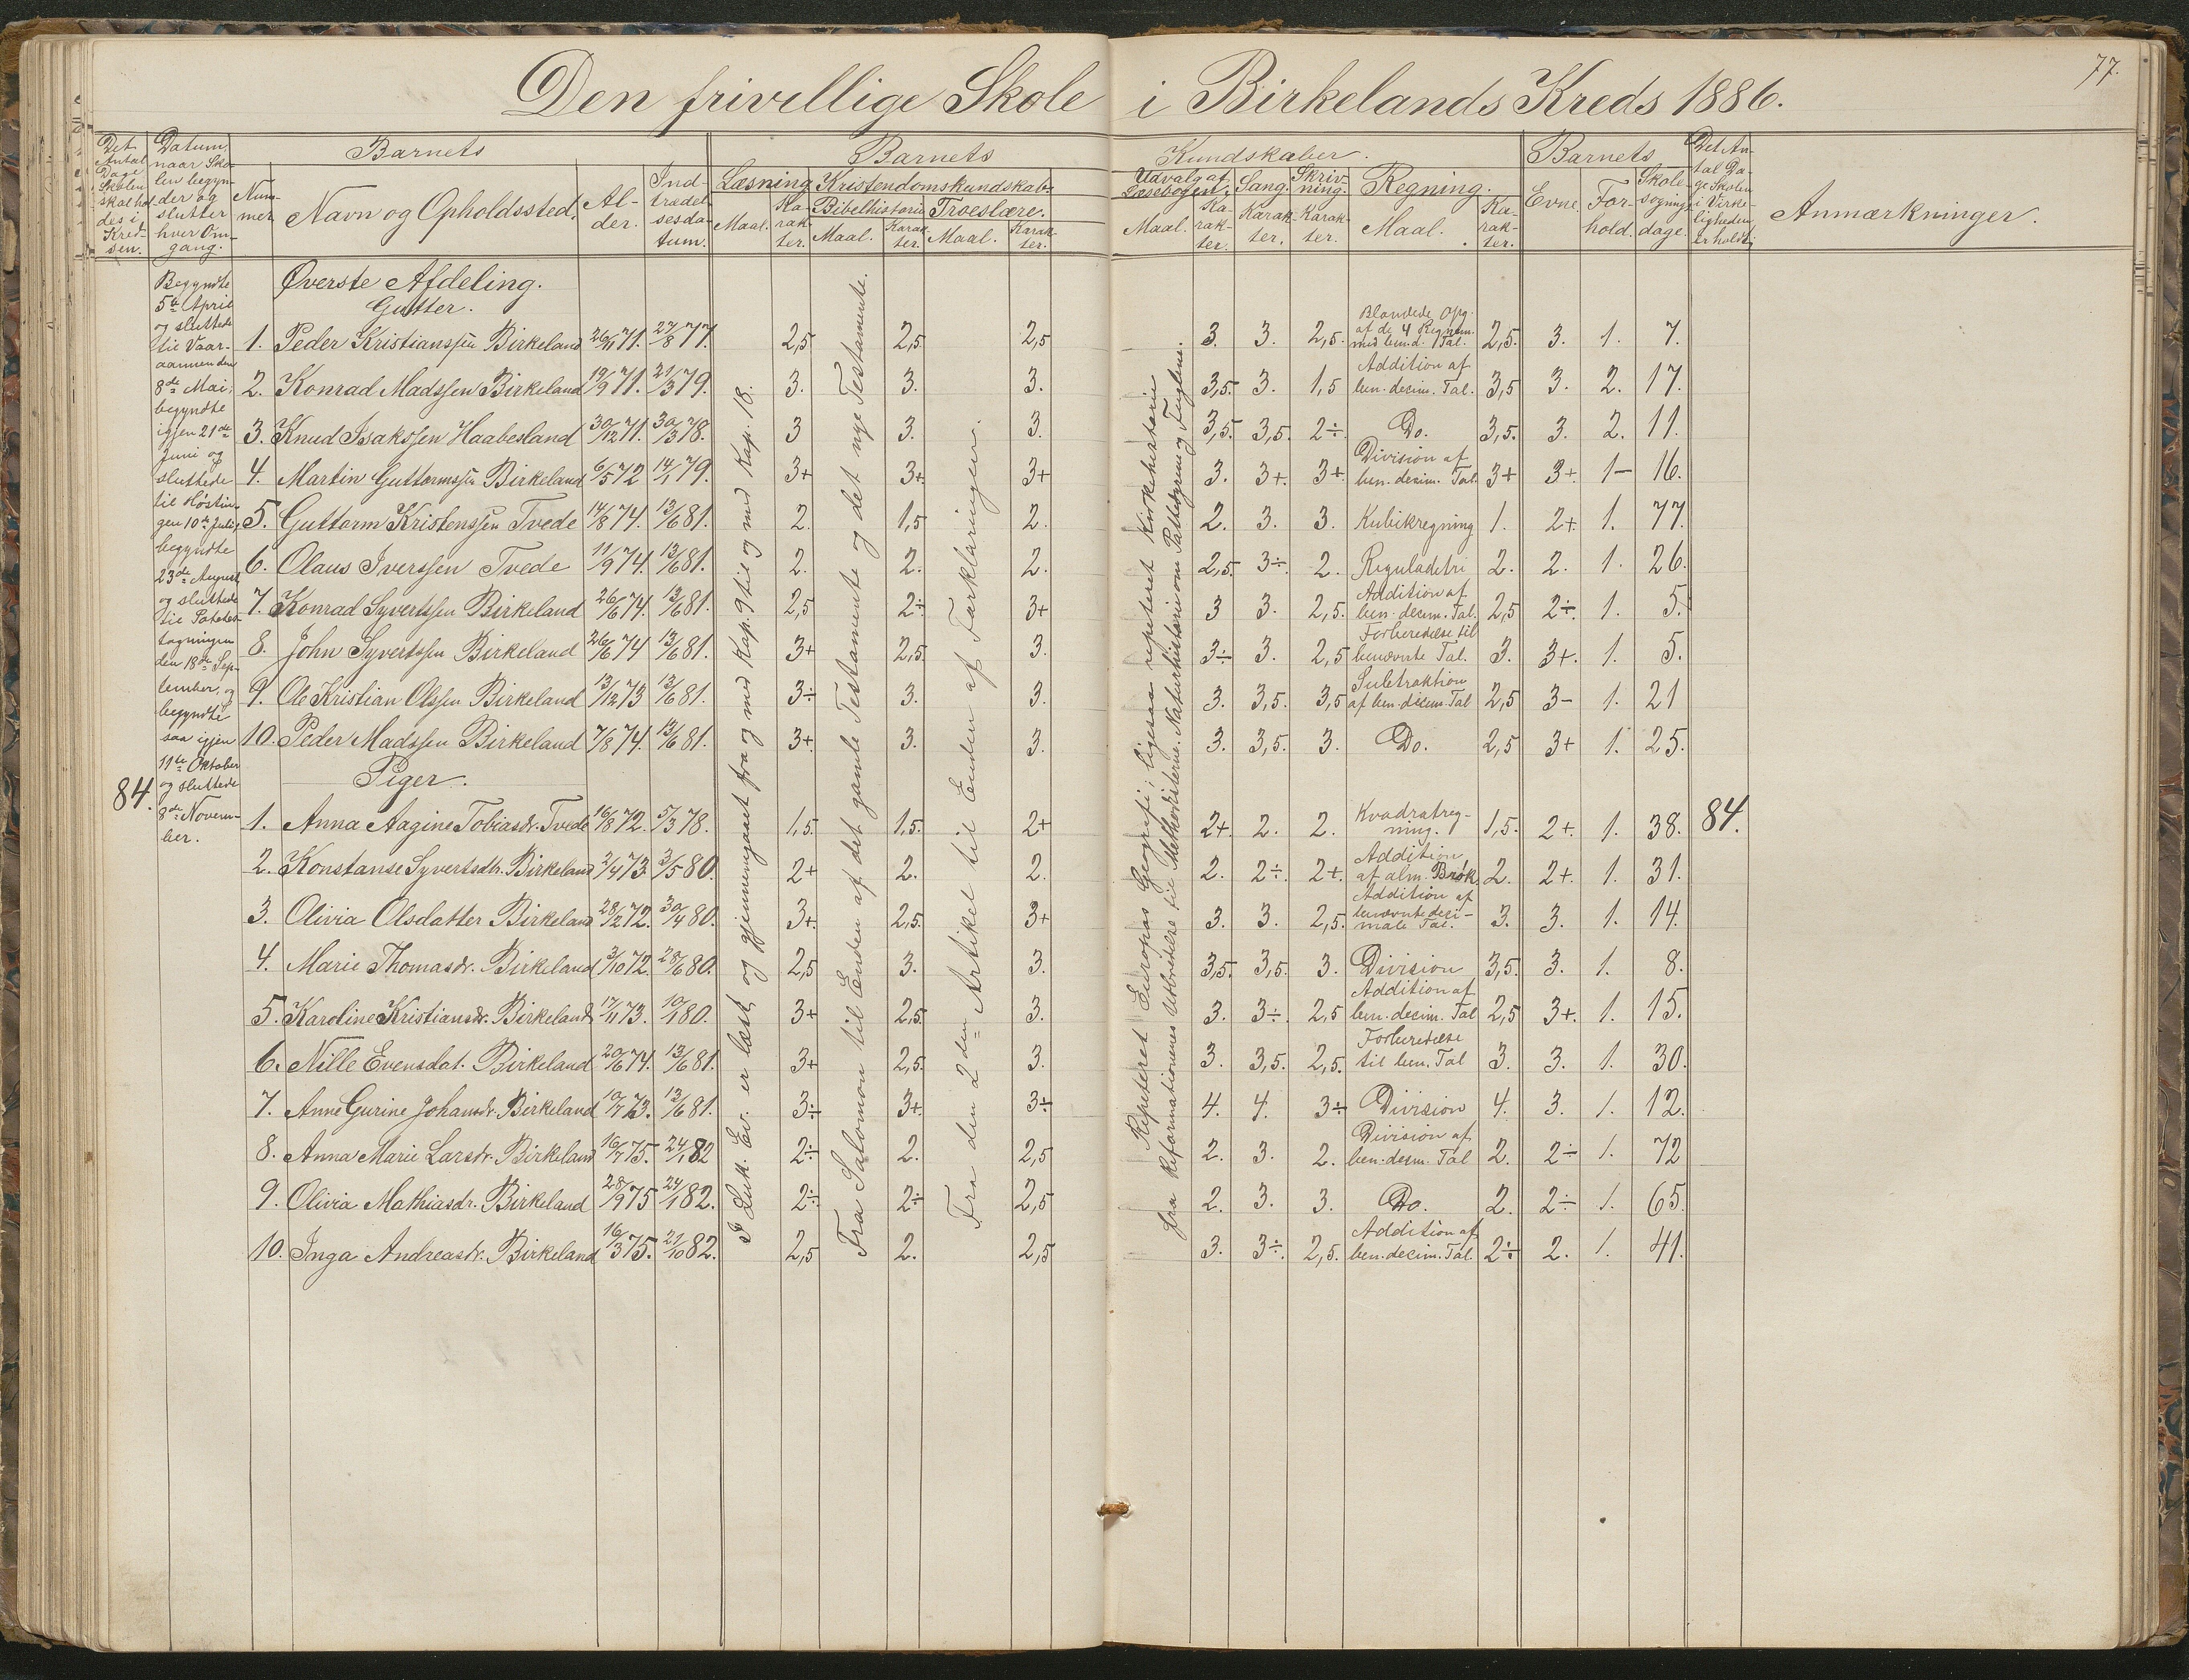 77.
Den frivillige Skole i Birkelands Kreds 1886.
Det Antal Dage Skolen skal holdes i Kredsen.
Datum, naar Skolen begynder og slutter hver Omgang.
Barnets
Nummer.
Navn og Opholdssted.
Alder.
Indtrædelsesdatum.
Barnets Kundskaber.
Læsning
Maal.
Karakter.
Kristendomskundskab.
Bibelhistorie
Maal.
Karakter.
Troeslære.
Maal.
Karakter.
Udvalg af Læsebogen.
Maal.
Karakter.
Sang.
Karakter.
Skrivning.
Karakter.
Regning.
Maal.
Karakter.
Barnets
Evne.
Forhold.
Skolesøgningsdage.
Det Antal Dage Skolen i Virkeligheden er holdt
Anmærkninger.
84.
Begyndte
5te April
og sluttede
til Vaar-
aannenden
8de Mai,
begyndte
igjen 21de
Juni og
sluttede
til Høstin-
gen 10de Juli,
begyndte
23de August
og sluttede
til Potetes-
tagningen
den 18de Sep-
tember, og
begyndte
saa igjen
11te Oktober
og sluttede
8de Novem-
ber.
I Luk. Ev. er læst og gjennemgaaet fra og med Kap. 9 til og med Kap. 18.
Fra Salomon til Enden af det gamle Testamente og det nye Testamente.
Fra den 2den Artikel til Enden af Forklaringen.
Repeteret Europas Geografi; ligesaa repeteret Kirkehistorie
fra Reformationens Udbredelse til Methodisterne. Naturhistorie om Pattedyrene og Fuglene.
Øverste Afdeling.
Gutter.
1. Peder Kristianssen Birkeland 26/11 71. 27/8 77. 2,5 2,5 2,5 3. 3. 2,5. Blandede Opg. af de 4 Regnm. med ben. d. Tal. 2,5. 3. 1. 7.
2. Konrad Madssen Birkeland 19/9 71. 21/3 79. 3. 3. 3. 3,5. 3. 1,5 Addition af ben. decim. Tal. 3,5 3. 2. 17.
3. Knud Isakssen Haabesland 30/12 71. 30/3 78. 3 3. 3. 3,5. 3,5. 2÷ Do. 3,5. 3. 2. 11.
4. Martin Guttormssen Birkeland 6/5 72 14/1 79. 3+ 3+ 3+ 3. 3+. 3+. Division af ben. decim. Tal. 3+ 3+. 1- 16.
5. Guttorm Kristenssen Tvede 14/8 74. 13/6 81. 2. 1,5 2. 2. 3. 3. Kubikregning 1. 2+ 1. 77.
6. Olaus Iverssen Tvede 11/9 74. 13/6 81. 2. 2. 2. 2,5. 3÷. 2. Reguladetri 2. 2. 1. 26.
7. Konrad Syvertssen Birkeland 26/6 74. 13/6 81. 2,5 2÷ 3+ 3 3. 2,5. Addition af ben. decim. Tal. 2,5 2÷. 1. 5.
8. John Syvertssen Birkeland 26/6 74 13/6 81. 3+ 2,5. 3. 3÷ 3. 2,5 Forberedelse til benævnte Tal. 3. 3+. 1. 5.
9. Ole Kristian Olssen Birkeland 13/12 73 13/6 81. 3÷ 3. 3. 3. 3,5. 3,5 Subtraktion af ben. decim. Tal 2,5 3- 1. 21
10. Peder Madssen Birkeland 7/8 74. 13/6 81. 3+. 3. 3. 3. 3,5. 3. Do. 2,5 3+ 1. 25.
Piger.
1. Anna Aagine Tobiasdr. Tvede 16/8 72. 5/3 78. 1,5. 1,5. 2+ 2+. 2. 2. Kvadratreg- ning. 1,5. 2+. 1. 38. 84.
2. Konstanse Syvertsdtr. Birkeland 2/4 73. 3/5 80. 2+ 2. 2. 2. 2÷. 2+. Addition af alm. Brøk. 2. 2+. 1. 31.
3. Olivia Olsdatter Birkeland 28/12 72. 30/4 80. 3+. 2,5. 3+ 3. 3. 2,5. Addition af benævnte deci- male Tal. 3. 3. 1. 14.
4. Marie Thomasdr. Birkeland 3/10 72. 28/6 80. 2,5 3. 3. 3,5. 3,5. 3. Division 3,5. 3. 1. 8.
5. Karoline Kristiansdr. Birkeland 17/11 73. 10/1 80. 3+ 2,5. 3. 3. 3÷. 2,5 Addition af ben. decim. Tal 2,5 3+. 1. 15.
6. Nille Evensdat. Birkeland 20/6 74. 13/6 81. 3+ 2,5. 3. 3. 3,5. 2,5. Forberedelse til ben. Tal 3. 3. 1. 30.
7. Anne Gurine Johansdr. Birkeland 10/7 73. 13/6 81. 3÷ 3+. 3÷ 4. 4. 3÷ Division 4. 3. 1. 12.
8. Anna Marie Larsdr. Birkeland 16/7 75. 24/1 82 2÷ 2. 2,5 2. 3. 2. Division af ben. decim. Tal 2. 2÷ 1. 72
9. Olivia Mathiasdr. Birkeland 28/9 75 24/1 82. 2÷ 2÷ 2,5 2. 3. 3. Do. 2. 2÷ 1. 65.
10. Inga Andreasdr. Birkeland 16/3 75. 27/10 82. 2,5 2. 2,5 3. 3÷. 2,5. Addition af ben. decim. Tal. 2÷ 2. 1. 41.